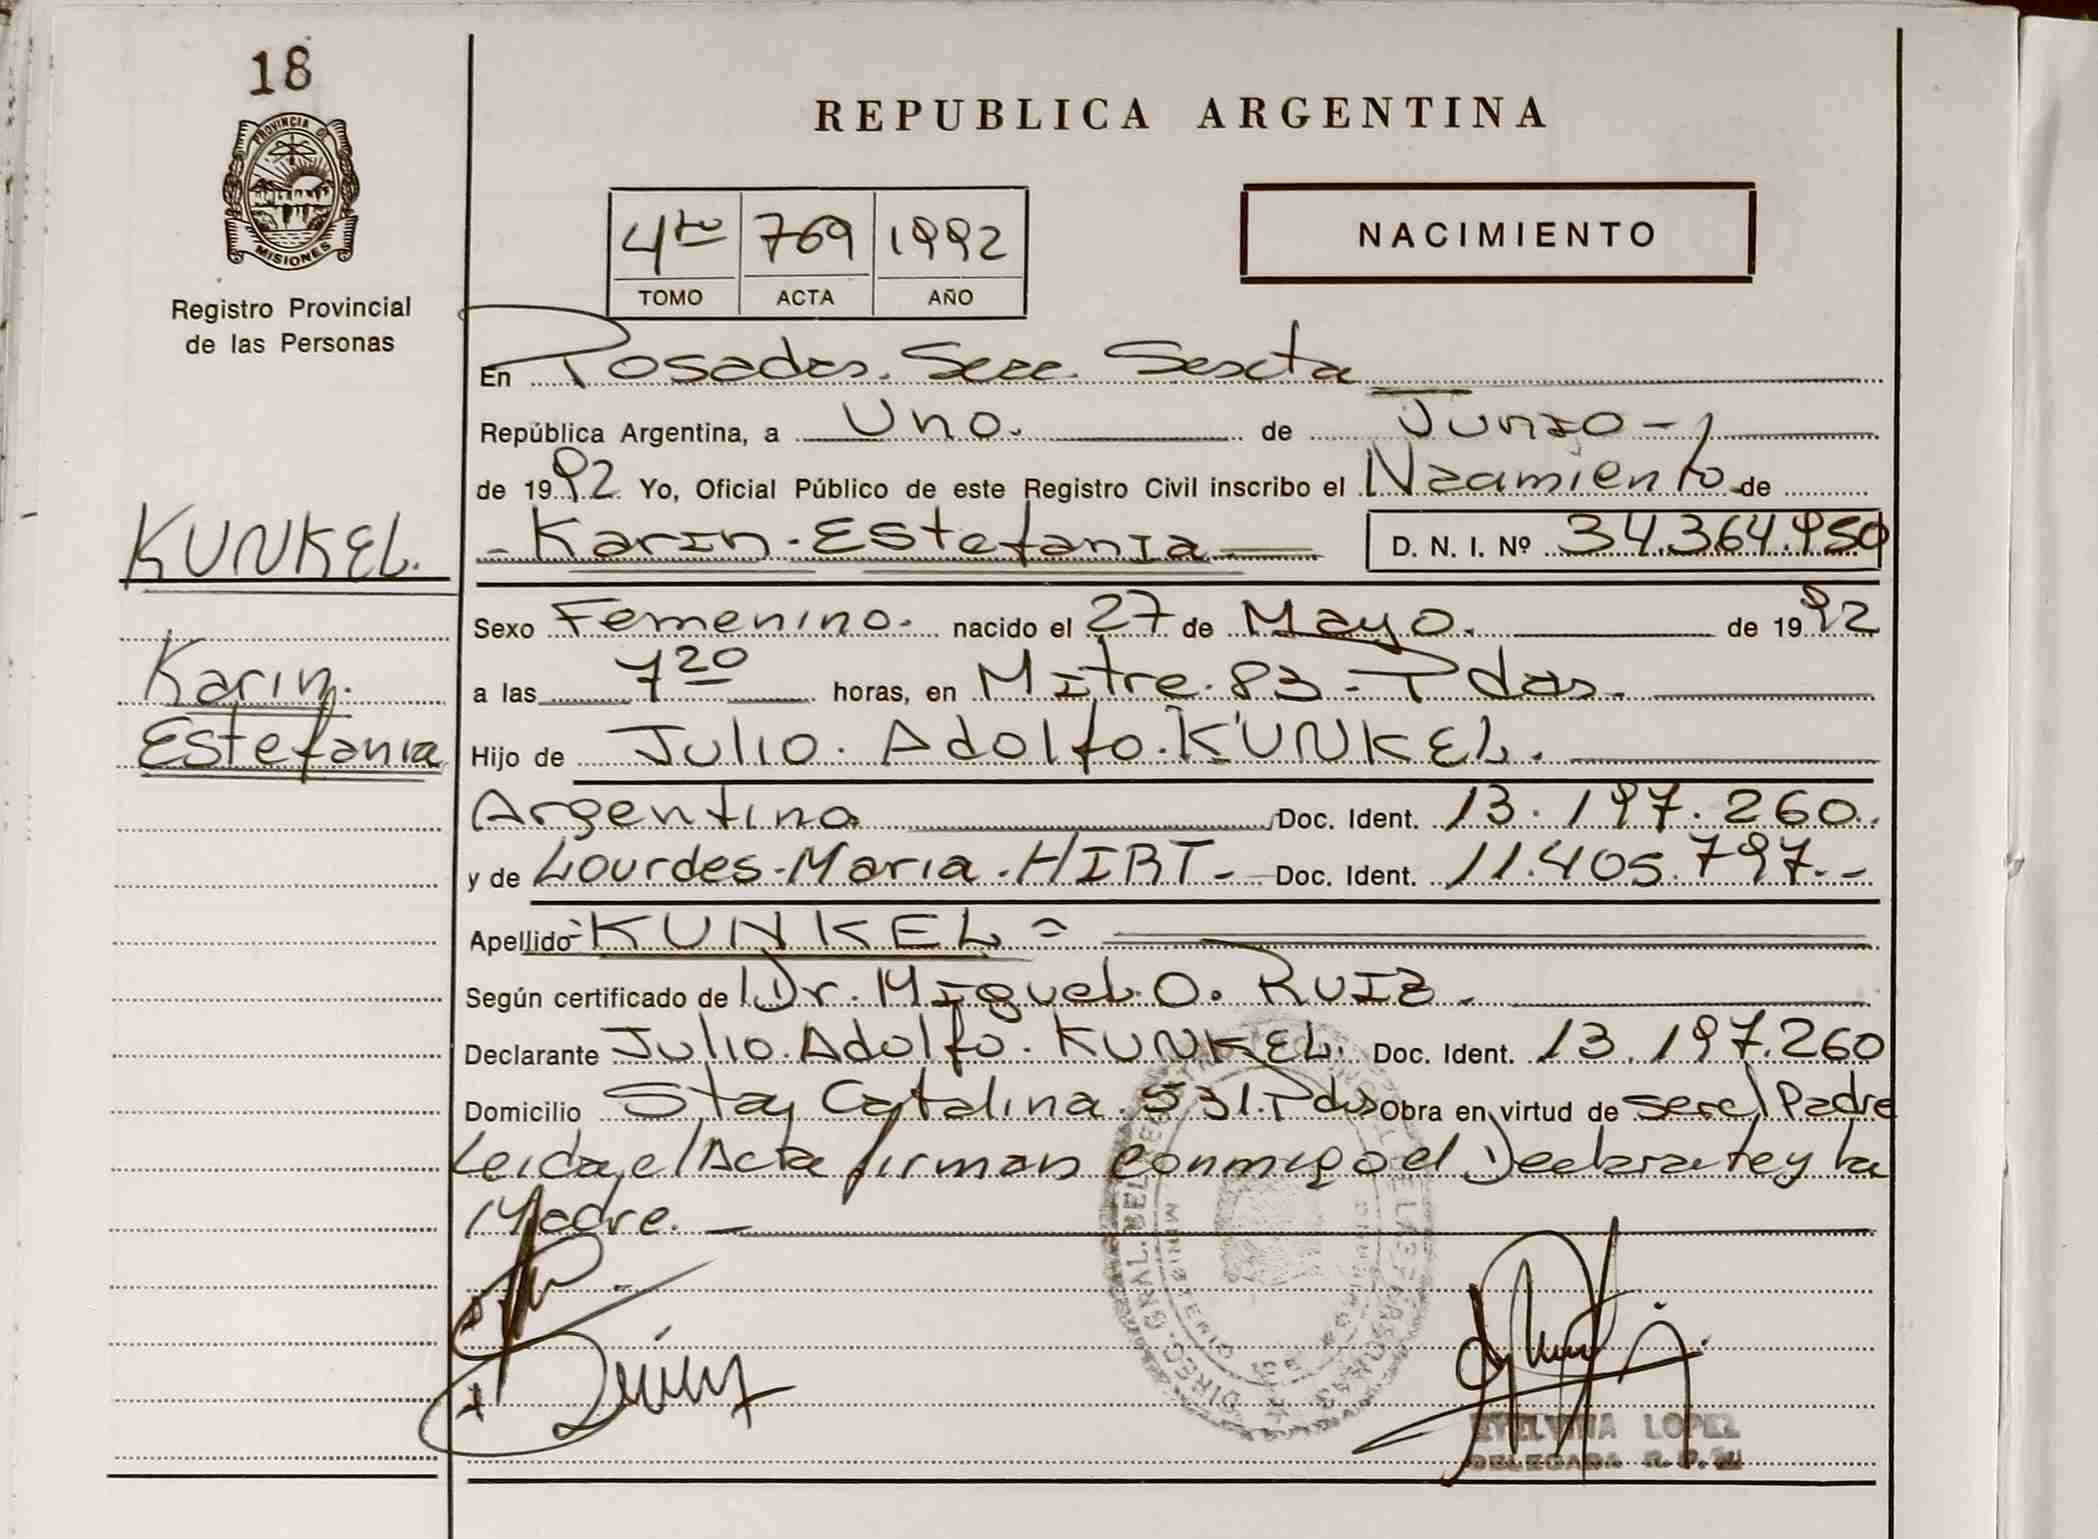 18
PROVINCIA DE
MISIONES
Registro Provincial
de las Personas
KUNKEL.
Karin.
Estefania
REPUBLICA ARGENTINA
4to 769 1992
TOMO ACTA AÑO
NACIMIENTO
En Posadas. Secc. Sexta
República Argentina, a Uno. de Junio -
de 1992. Yo, Oficial Público de este Registro Civil inscribo el Nacimiento de
- Karin - Estefania D. N. I. Nº 34.364.950
Sexo Femenino. nacido el 27 de Mayo. de 1992
a las 7 20 horas, en Mitre. 83 - Pdas.
Hijo de Julio. Adolfo. KUNKEL.
Argentina Doc. Ident. 13.197.260.
y de Lourdes - Maria. HIRT - Doc. Ident. 11.405.797.-
Apellido = KUNKEL =
Según certificado de Dr. Miguel. O. RUIZ.
Declarante Julio. Adolfo. KUNKEL. Doc. Ident. 13.197.260
Domicilio Sta Catalina. 531. Pdas Obra en virtud de ser el Padre
Leida el Acta firman conmigo el Declarante y la
Madre.
DIREC. GRAL. DEL REGISTRO
MINISTERIO DE
ETELVINA LOPEZ
DELEGADA